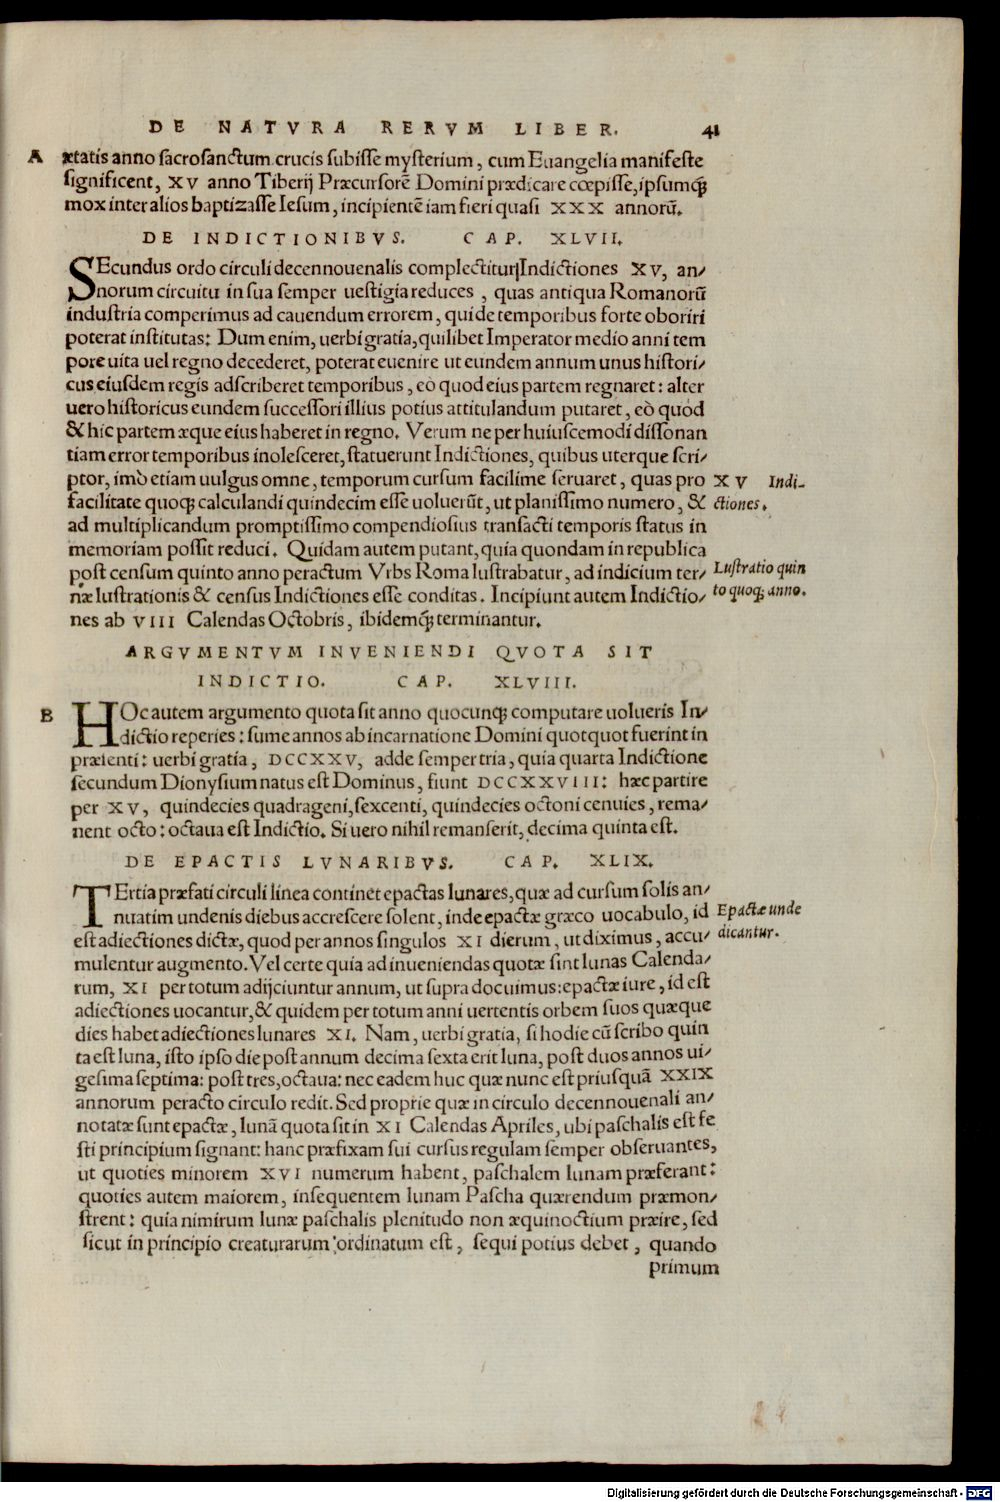 DE NATVRA RERVM LIBER. 41
A ætatis anno sacrosanctum crucis subisse mysterium, cum Euangelia manifeste
significent, XV anno Tiberij Præcursorē Domini prædicare cœpisse, ipsumq́
mox inter alios baptizasse Iesum, incipientē iam fieri quasi XXX annorū.
DE INDICTIONIBVS. CAP. XLVII.
SEcundus ordo circuli decennouenalis complectitur Indictiones XV, an/
norum circuitu in sua semper uestigia reduces, quas antiqua Romanorū
industria comperimus ad cauendum errorem, qui de temporibus forte oboriri
poterat institutas: Dum enim, uerbi gratia, quilibet Imperator medio anni tem
pore uita uel regno decederet, poterat euenire ut eundem annum unus histori/
cus eiusdem regis adscriberet temporibus, eò quod eius partem regnaret: alter
uero historicus eundem successori illius potius attitulandum putaret, eò quòd
& hic partem æque eius haberet in regno. Verum ne per huiuscemodi dissonan
tiam error temporibus inolesceret, statuerunt Indictiones, quibus uterque scri/
ptor, imò etiam uulgus omne, temporum cursum facilime seruaret, quas pro
XV Indi-
facilitate quoq; calculandi quindecim esse uoluerūt, ut planissimo numero, &
ctiones.
ad multiplicandum promptissimo compendiosius transacti temporis status in
memoriam possit reduci. Quidam autem putant, quia quondam in republica
post censum quinto anno peractum Vrbs Roma lustrabatur, ad indicium ter/
Lustratio quin
næ lustrationis & census Indictiones esse conditas. Incipiunt autem Indictio/
to quoq; anno.
nes ab VIII Calendas Octobris, ibidemq́; terminantur.
ARGVMENTVM INVENIENDI QVOTA SIT
INDICTIO. CAP. XLVIII.
B HOc autem argumento quota sit anno quocunq; computare uolueris In/
dictio reperies: sume annos ab incarnatione Domini quotquot fuerint in
præsenti: uerbi gratia, DCCXXV, adde semper tria, quia quarta Indictione
secundum Dionysium natus est Dominus, fiunt DCCXXVIII: hæc partire
per XV, quindecies quadrageni, sexcenti, quindecies octoni cenuies, rema/
nent octo: octaua est Indictio. Si uero nihil remanserit, decima quinta est.
DE EPACTIS LVNARIBVS. CAP. XLIX.
TErtia præfati circuli linea continet epactas lunares, quæ ad cursum solis an/
nuatim undenis diebus accrescere solent, inde epactæ græco uocabulo, id
Epactæ unde
est adiectiones dictæ, quod per annos singulos XI dierum, ut diximus, accu/
dicantur.
mulentur augmento. Vel certe quia ad inueniendas quotæ sint lunas Calenda/
rum, XI per totum adijciuntur annum, ut supra docuimus: epactæ iure, id est
adiectiones uocantur, & quidem per totum anni uertentis orbem suos quæque
dies habet adiectiones lunares XI. Nam, uerbi gratia, si hodie cū scribo quin
ta est luna, isto ipso die post annum decima sexta erit luna, post duos annos ui/
gesima septima: post tres, octaua: nec eadem huc quæ nunc est priusquā XXIX
annorum peracto circulo redit. Sed proprie quæ in circulo decennouenali an/
notatæ sunt epactæ, lunā quota sit in XI Calendas Apriles, ubi paschalis est fe
sti principium signant: hanc præfixam sui cursus regulam semper obseruantes,
ut quoties minorem XVI numerum habent, paschalem lunam præferant:
quoties autem maiorem, insequentem lunam Pascha quærendum præmon/
strent: quia nimirum lunæ paschalis plenitudo non æquinoctium præire, sed
sicut in principio creaturarum ordinatum est, sequi potius debet, quando
primum
Digitalisierung gefördert durch die Deutsche Forschungsgemeinschaft - DFG